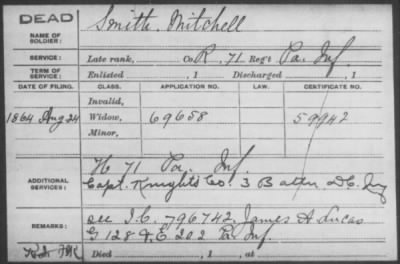 DEAD
NAME OF SOLDIER: Smith, Mitchell
SERVICE: Late rank, Co. R. 71 Reg't Pa. Inf.
TERM OF SERVICE: Enlisted , 1 Discharged , 1
DATE OF FILING. CLASS. APPLICATION NO. LAW. CERTIFICATE NO.
Invalid,
1864 Aug 24 Widow, 69658 59942
Minor,
ADDITIONAL SERVICES: H 71 Pa. Inf.
Capt. Knight's Co. 3 Batt'n D.C. Inf
REMARKS: see I.C. 796742, James A Lucas
G 128 & E 202 Pa Inf.
Died , 1 , at